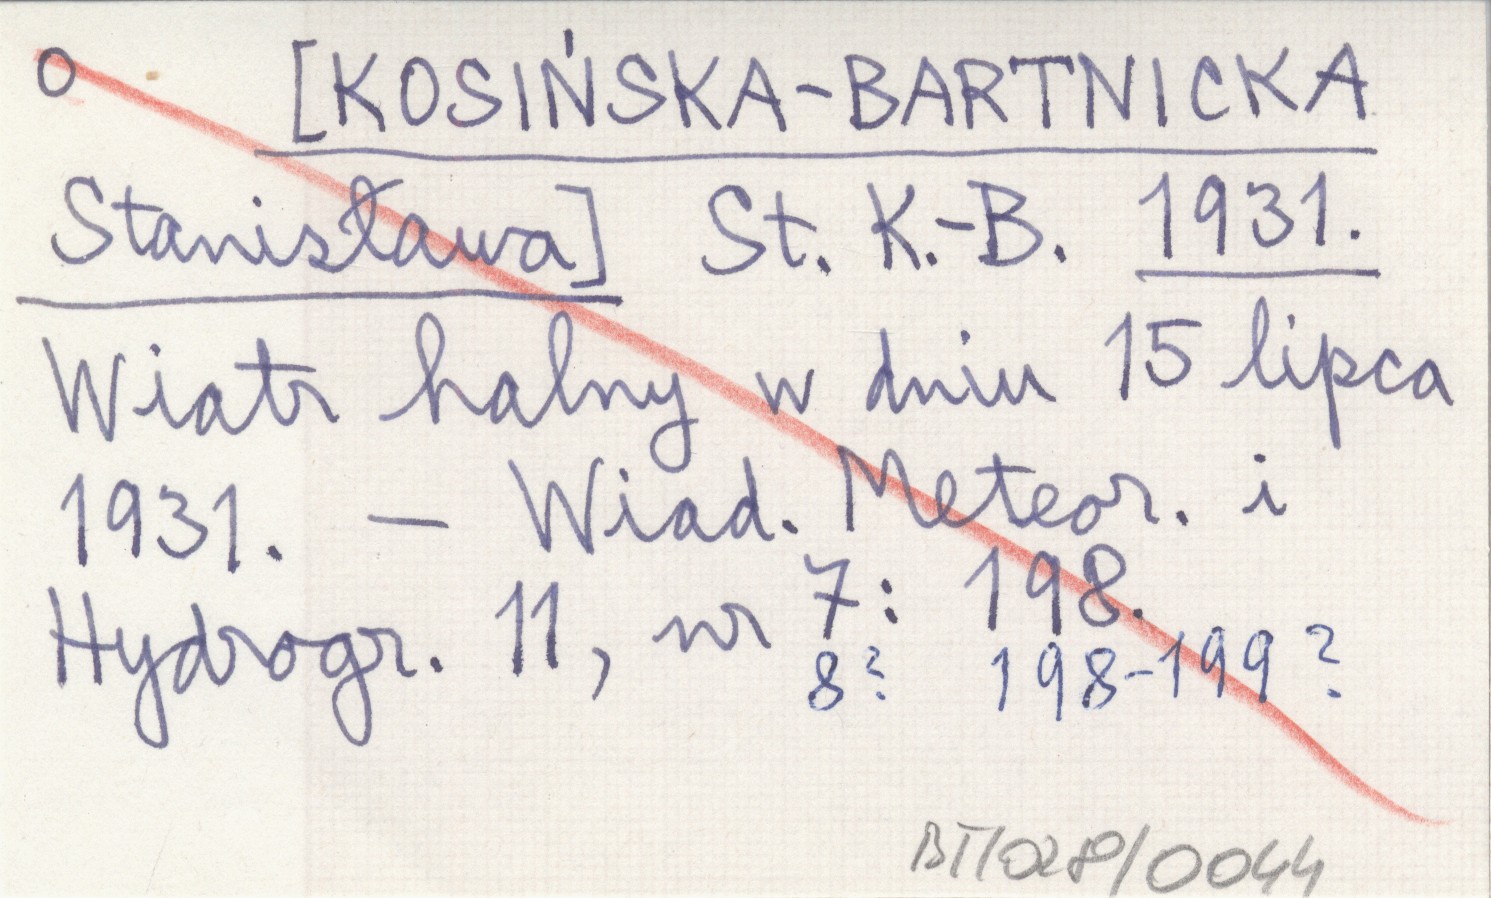 O [KOSIŃSKA-BARTNICKA
Stanisława] St. K.-B. 1931.
Wiatr halny w dniu 15 lipca
1931. — Wiad. Meteor. i
Hydrogr. 11, nr 7: 198.
8? 198-199?
BT/028/0044